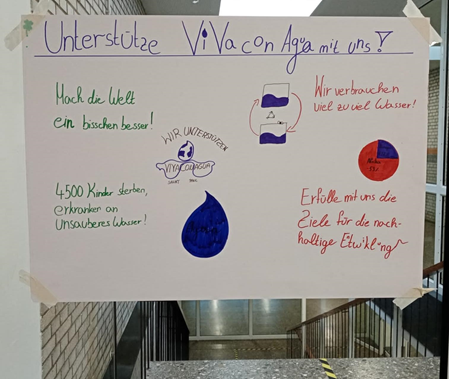 Unterstütze Viva con Agua mit uns!
Mach die Welt
ein bisschen besser!
Wir verbrauchen
viel zu viel Wasser!
WIR UNTERSTÜTZEN
VIVA CON AGUA
SANKT PAULI
4500 Kinder sterben,
erkranken an
Unsauberes Wasser!
Erfülle mit uns die
Ziele für die nach-
haltige Etwiklung